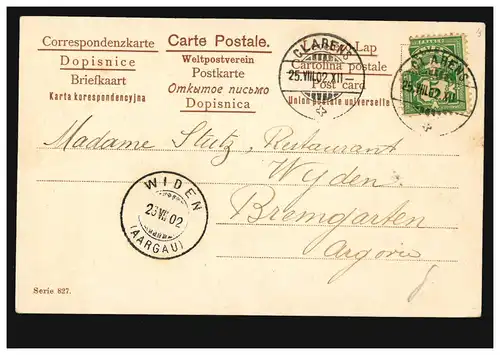 Correspondenzkarte
Dopisnice
Briefkaart
Karta korespondencyjna
Carte Postale.
Weltpostverein
Postkarte
Откмытое письмо
Dopisnica
Lap
Cartolina postale
Post card
Union postale universelle
CLARENS
25.VIII.02.XII-
CLARENS
25.VIII.02.XII
Madame Stutz, Restaurant
Wyden
Bremgarten
Argovie
WIDEN
(AARGAU)
Serie 827.